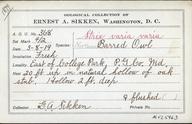 OOLOGICAL COLLECTION OF
ERNEST A. SIKKEN, WASHINGTON, D. C.
A. O. U. No. 368 Strix varia varia
Set Mark 4/2 Northern Barred Owl
Date 3-8-19
Incubation Fresh
Locality East of College Park, P. G. Co. Md.
Nest 20 ft up in natural hollow of oak
stub. Hollow 2 ft. deep.
♀ flushed
Collector E A Sikken